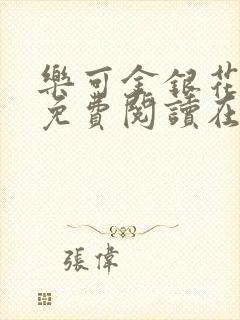 樂可金銀花
免費閱讀在
張偉